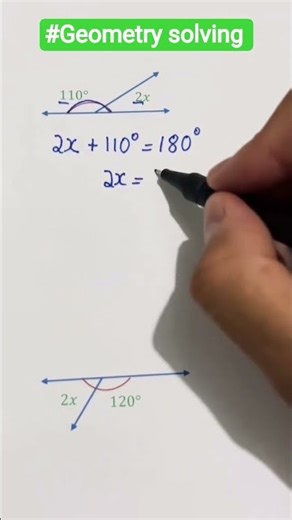 #Geometry solving
110° 2x
2x + 110° = 180°
2x =
2x 120°